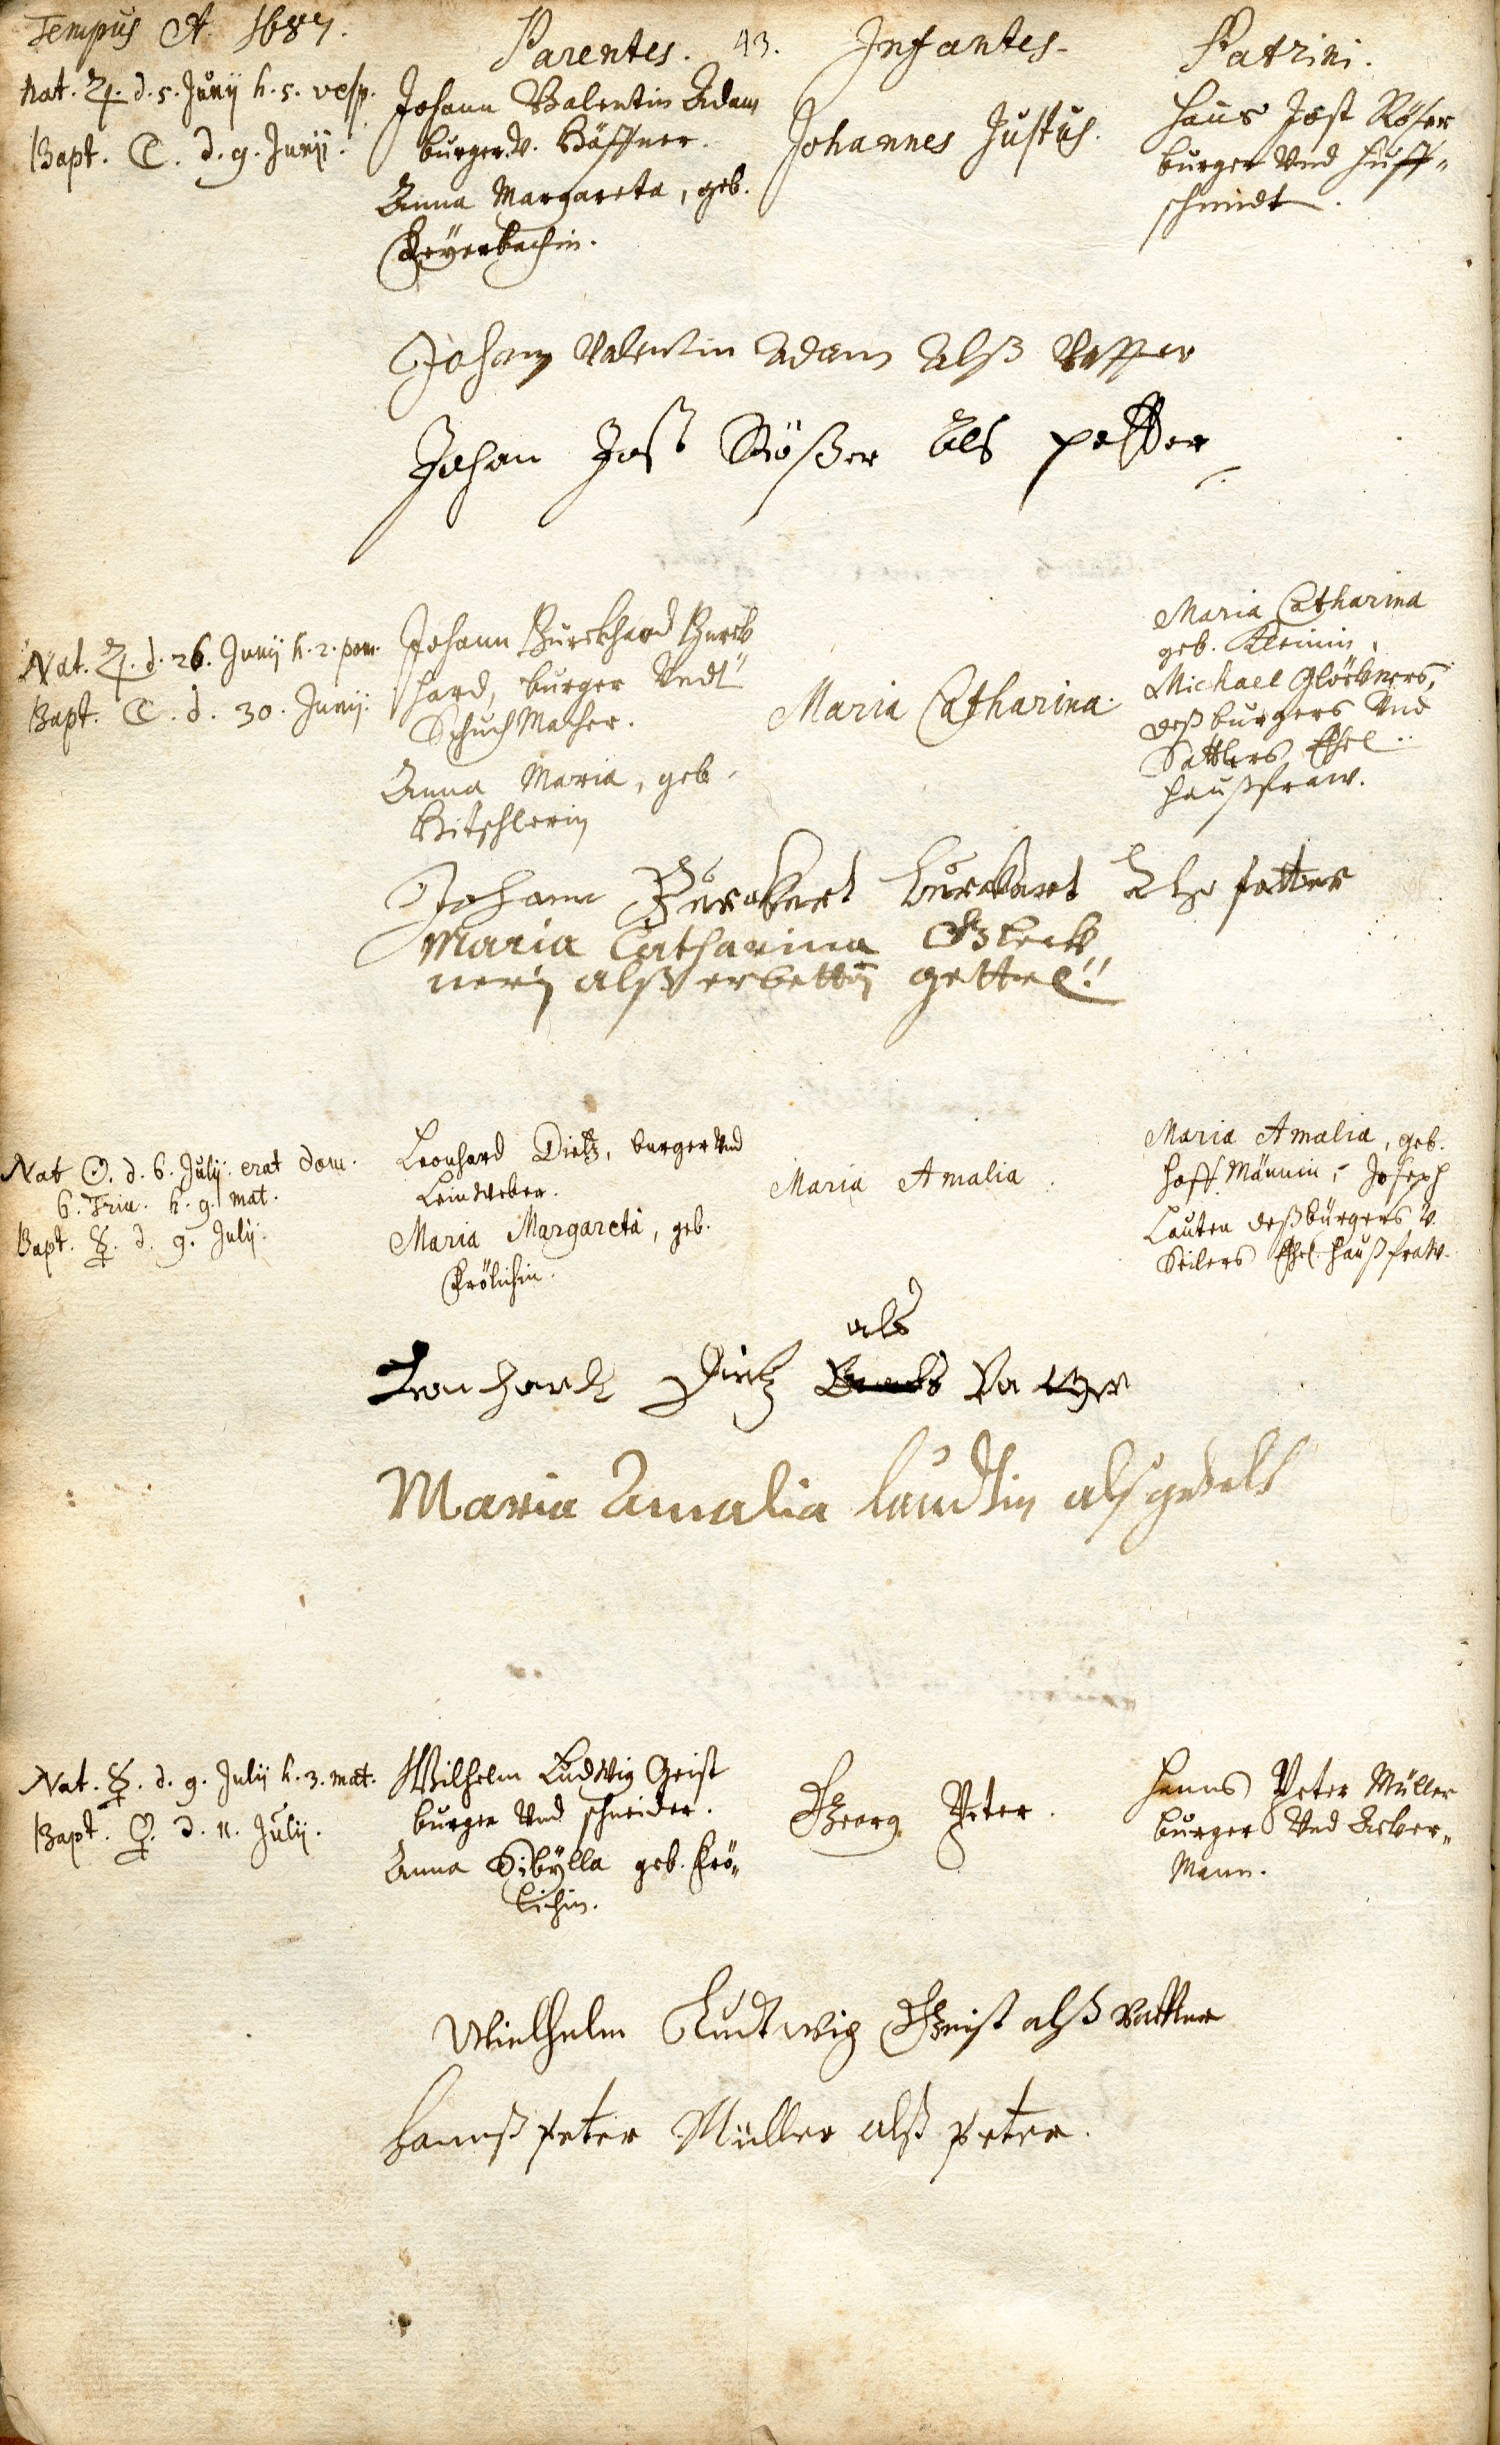 Tempus A. 1687.
Parentes. 43. Infantes. Patrini.
Nat. ♃. d. 5. Junij h. 5. vesp.
Bapt. ☾. d. 9. Junij.
Johann Valentin Adam
burger v. Häffner.
Anna Margareta, geb.
Johannes Justus.
Hans Jost Röser
burger Vnd Huff-
schmidt.
Johann Valentin Adam alß Vatter
Johan Jost Rößer als petter
Nat. ♃. d. 26. Junij h. 2. pom.
Bapt. ☾. d. 30. Junij.
Johann Burckhard Burck
hard, burger Vndt
Schuch Macher.
Anna Maria, geb.
Bitschlerin
Maria Catharina.
Maria Catharina
geb. Kleinin,
Michael Glöckners,
deß burgers Vnd
Sattlers Ehel.
haußfraw.
Johann Burckart burckart Alß fatter
Maria Catharina Gleck
nerin alß erbettin gettel
Nat ☉. d. 6. Julij. erat dom.
6. Trin. h. 9. mat.
Bapt. ☿. d. 9. Julij.
Leonhard Dietz, burger Vnd
Leinweber.
Maria Margareta, geb.
Frölichin.
Maria Amalia.
Maria Amalia, geb.
Hoff Männin, Joseph
Lauten deß bürgers v.
Seilers Ehel. haußfraw.
als
Leonhardt Dietz Vatter
Maria Amalia laudtin als gedelt
Nat. ☿. d. 9. Julij h. 3. mat.
Bapt. ♀. d. 11. Julij.
Wilhelm Ludwig Geist
burger Vnd schneider.
Anna Sibÿlla geb. Frö-
lichin.
Georg Peter.
Hanns Peter Müller
burger Vnd Acker-
Mann.
Wielhelm Ludtwig Geist alß Vatter
Hannß Peter Müller alß Peter.